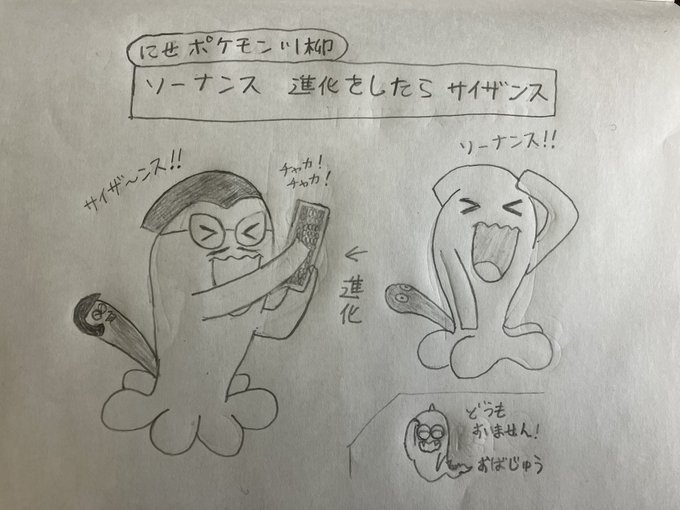 にせポケモン川柳
ソーナンス 進化をしたら サイザンス
サイザ〜ンス!!
チャカ!
チャカ!
ソーナンス!!
←
進化
どうも
すいません!
おばじゅう